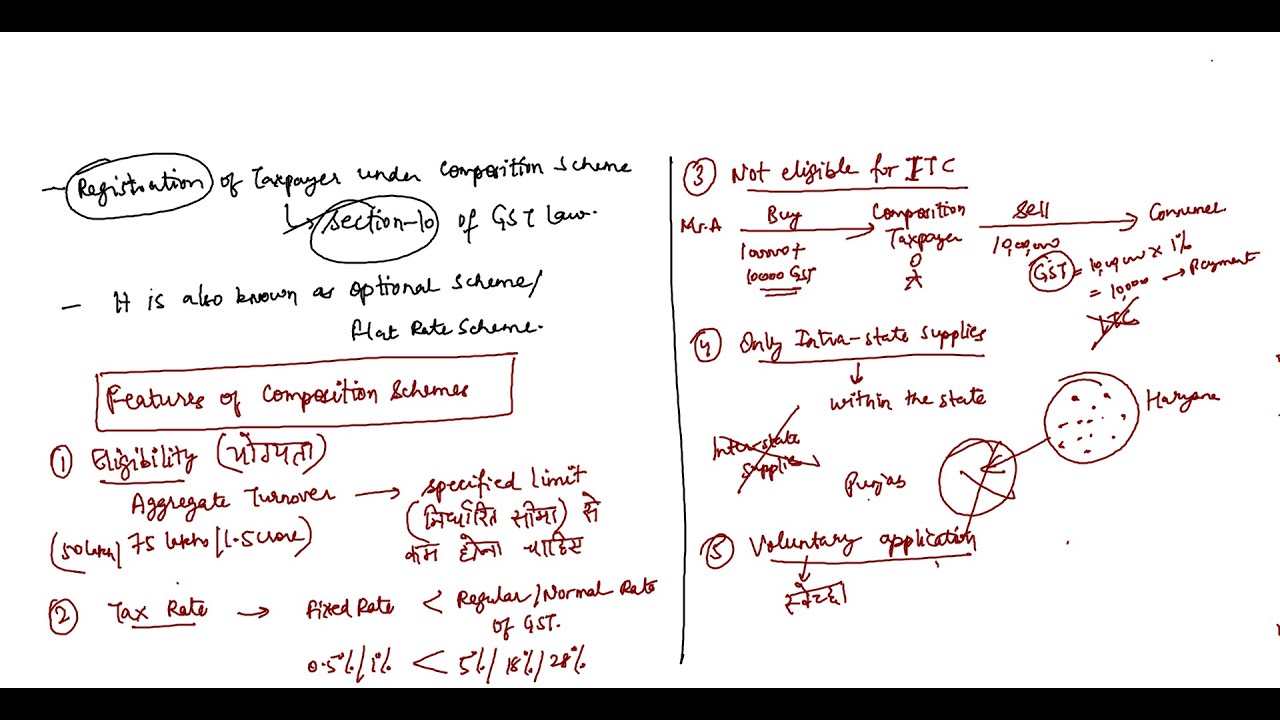 - Registration of Taxpayer under Composition Scheme
Section-10 of GST Law.
- It is also known as optional Scheme/
Flat Rate Scheme.
Features of Composition Schemes
① Eligibility (योग्यता)
Aggregate Turnover → specified limit
(निर्धारित सीमा) से
(50 lakh/ 75 lakhs/1.5 crore) कम होना चाहिए
② Tax Rate → Fixed Rate < Regular/Normal Rate
of GST.
0.5%/1% < 5%/18%/28%
③ Not eligible for ITC
Mr.A Buy Composition Taxpayer Sell Consumer
100000+
10000 GST
10,00,000
GST = 10,00,000 x 1%
= 10,000 → Payment
ITC
④ Only Intra-state supplies
within the state
Inter-state
supplies
Punjab
Haryana
⑤ Voluntary application
स्वेच्छा